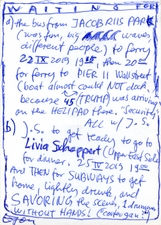 WAITING FOR
a) the bus from JACOB RIIS PARK
(was fun, big waves,
different people) to ferry
22 IX 2019 19⁰⁰, then 20⁰⁰
for ferry to PIER 11 Wallstreet
(boat almost could NOT dock,
because 45 (TRUMP) was arriving
on the HELIPAD there, "Security")
ALL w/ J.S.
b) J.S. to get ready to go to
Livia Scheppart (Upper East Side)
for dinner. 25 IX 2019 19³⁰
AND THEN for SUBWAYS to get
home, lightly drunk, and
SAVORING the scent, I drummed
WITHOUT HANDS!